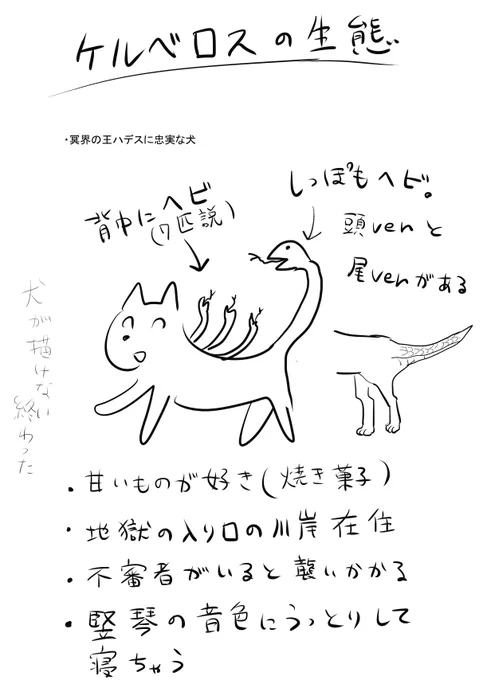 ケルベロスの生態
・冥界の王ハデスに忠実な犬
背中にヘビ
(7匹説)
しっぽもヘビ。
頭verと
尾verがある
犬が描けない
終わった
・甘いものが好き(焼き菓子)
・地獄の入り口の川岸在住
・不審者がいると襲いかかる
・竪琴の音色にうっとりして
寝ちゃう